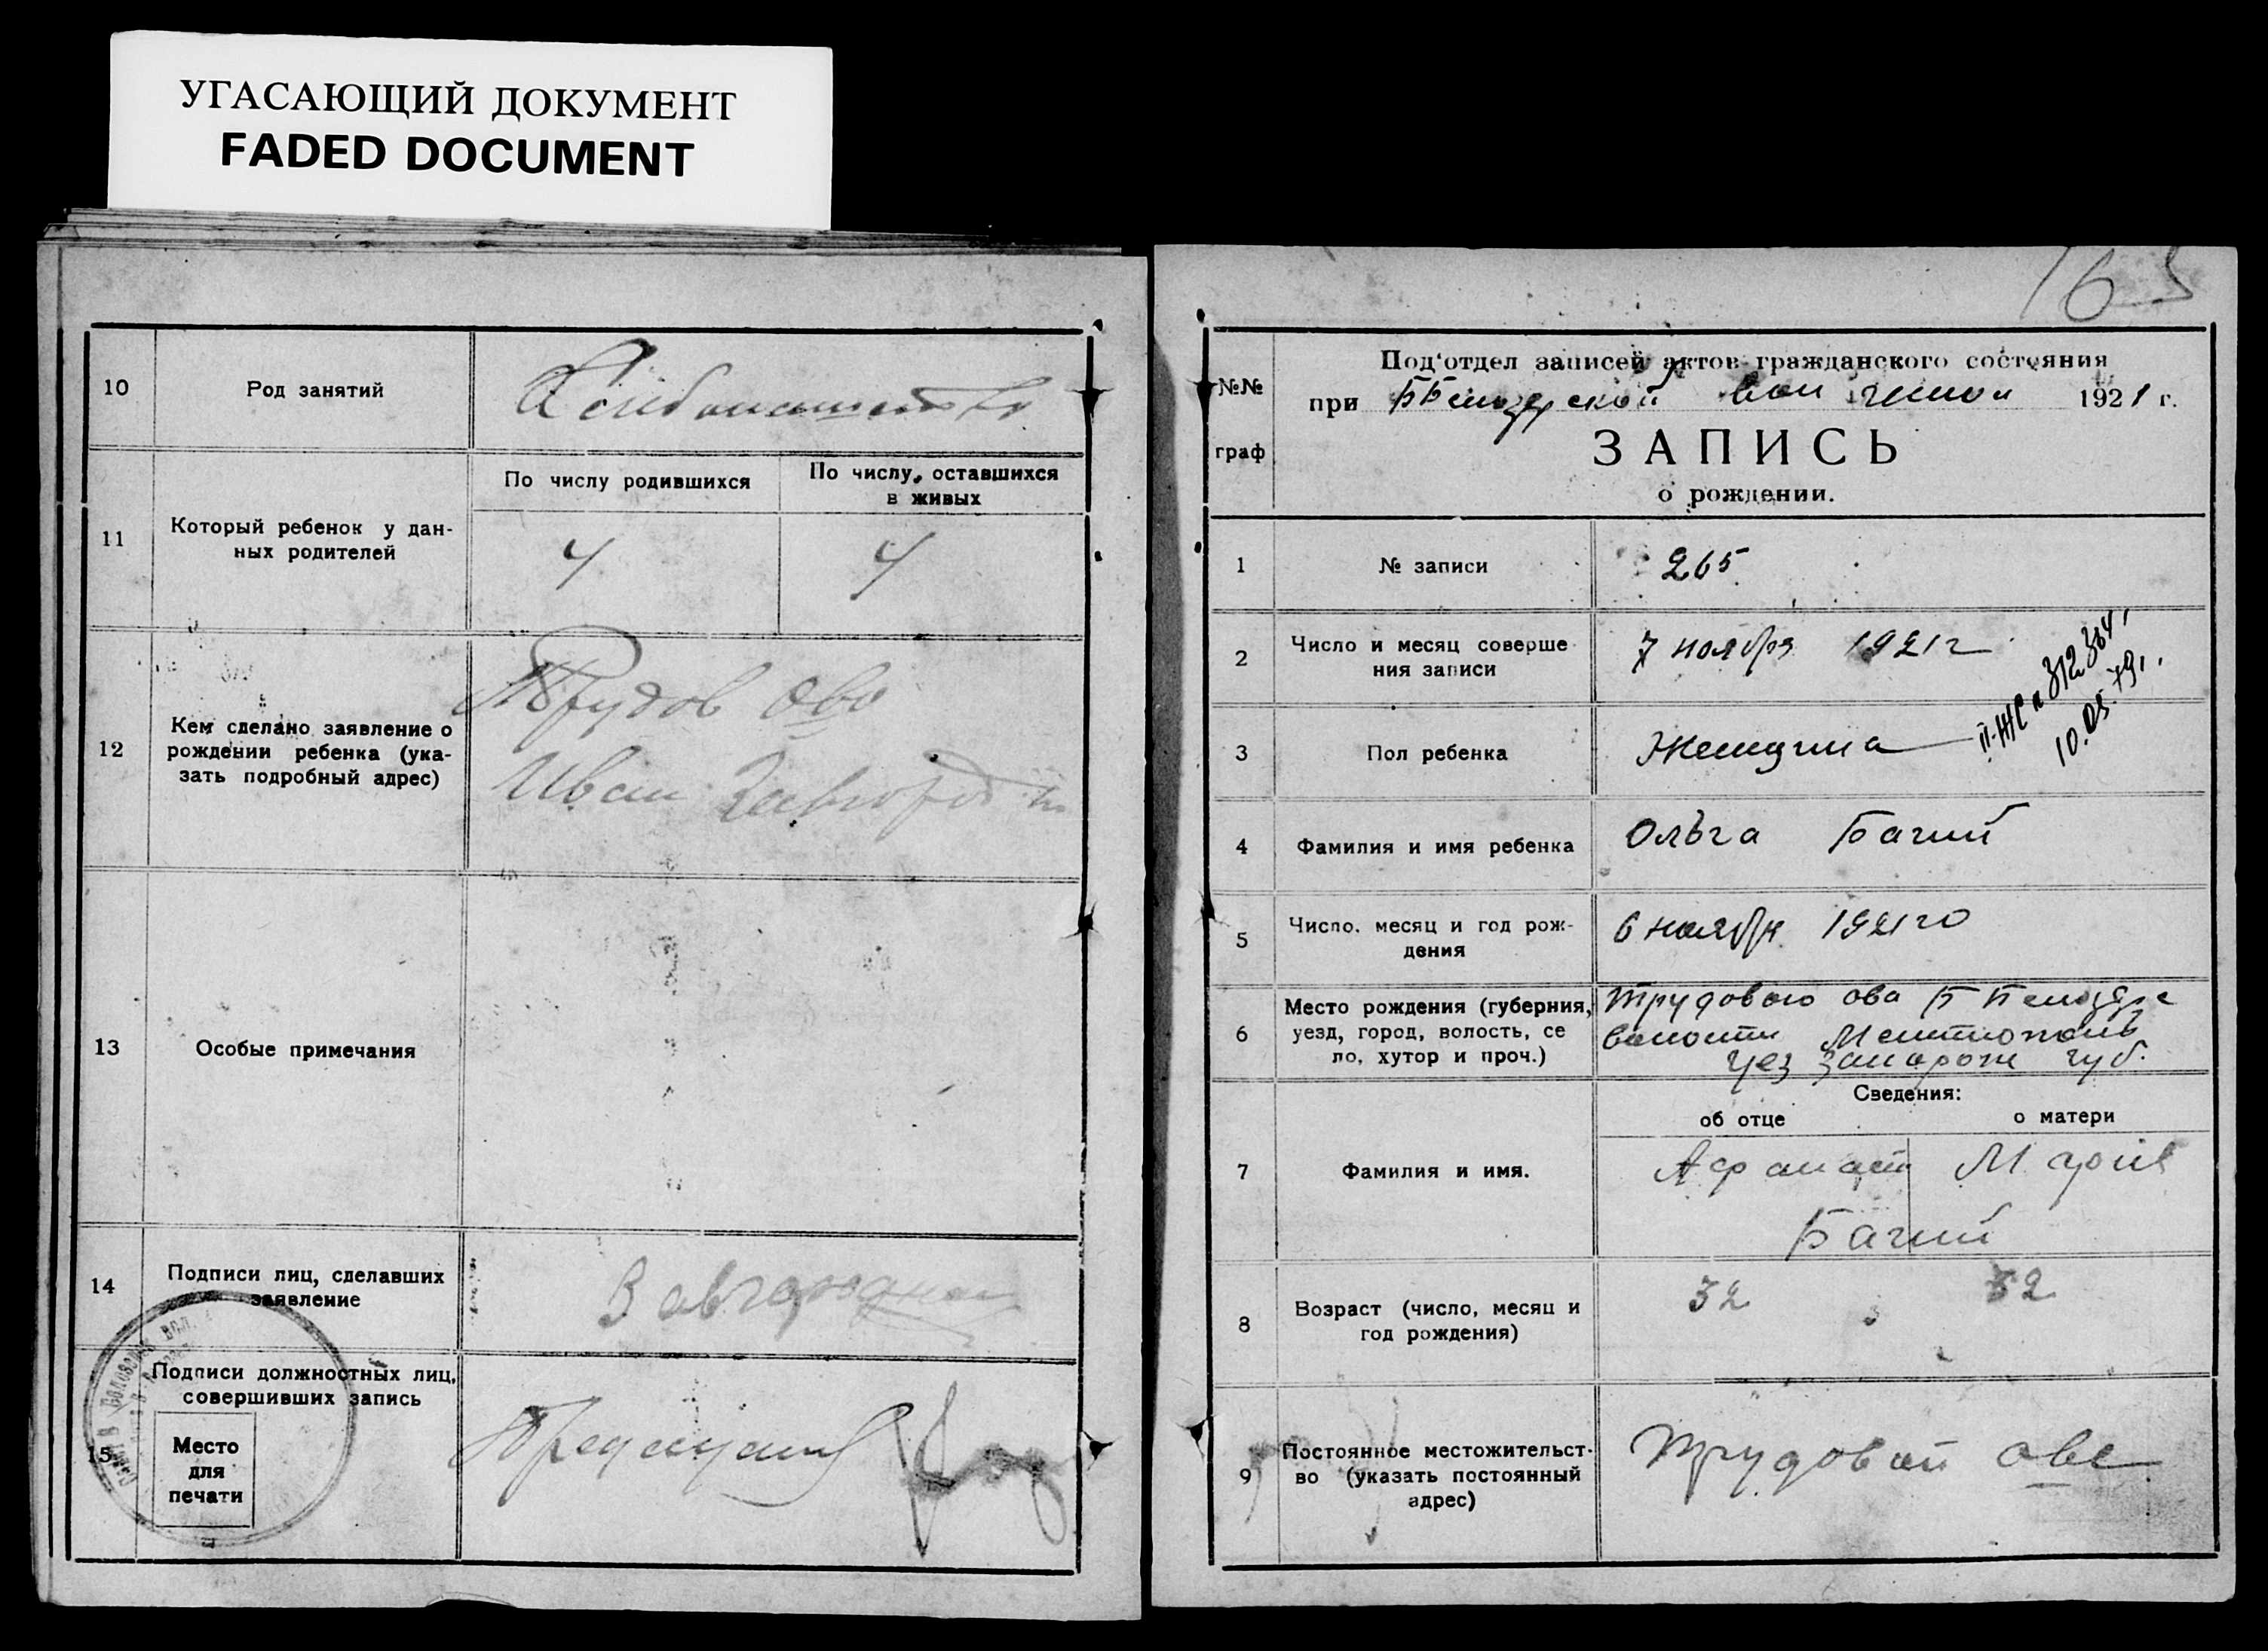 УГАСАЮЩИЙ ДОКУМЕНТ
FADED DOCUMENT
10
Род занятий
11
Который ребенок у дан-
ных родителей
По числу родившихся
По числу, оставшихся
в живых
4
4
12
Кем сделано заявление о
рождении ребенка (ука-
зать подробный адрес)
Трудов ово
Иван
13
Особые примечания
14
Подписи лиц, сделавших
заявление
15
Подписи должностных лиц,
совершивших запись
Место
для
печати
№№
граф
Под'отдел записей актов гражданского состояния
при 1921 г.
ЗАПИСЬ
о рождении.
1
№ записи
265
2
Число и месяц соверше
ния записи
7 ноября 1921 г
3
Пол ребенка
Женщина
10.05.79г.
4
Фамилия и имя ребенка
Ольга Багий
5
Число, месяц и год рож-
дения
6 ноября 1921 го
6
Место рождения (губерния,
уезд, город, волость, се
ло, хутор и проч.)
Трудового ова
волости Мелитополь
уез запорож губ.
Сведения:
об отце
о матери
7
Фамилия и имя.
Афанаси
Мария
Багий
8
Возраст (число, месяц и
год рождения)
32
32
9
Постоянное местожительст-
во (указать постоянный
адрес)
Трудовой ове